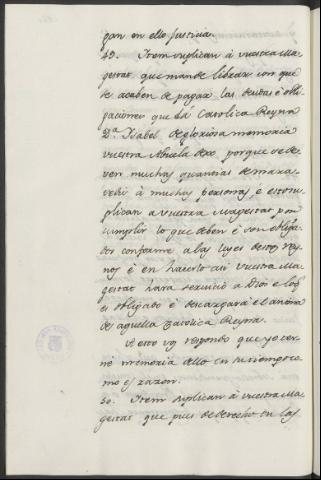 gan en ello Justicia.
49. Item suplican à vuestra Ma-
gestat que mande librar con que
se acaben de pagar las deudas è obli-
gaciones que la Catolica Reyna
D.ª Isabel de gloriosa memoria
vuestra Abuela dexo porque se de-
ven muchas quantias de marave-
à muchas personas è esto su-
plican a vuestra Magestat por
cumplir lo que deben è son obliga-
dos conforme a las leyes destos rey-
nos è en hacerlo asi vuestra Ma-
gestat hara servicio à Dios è lo q.
es obligado è descargará el anima
de aquella Catolica Reyna.
A esto vos respondo que yo ter-
né memoria dello en su tiempo co-
mo es razon.
50. Item suplican à vuestra Ma-
gestat que pues de derecho en las